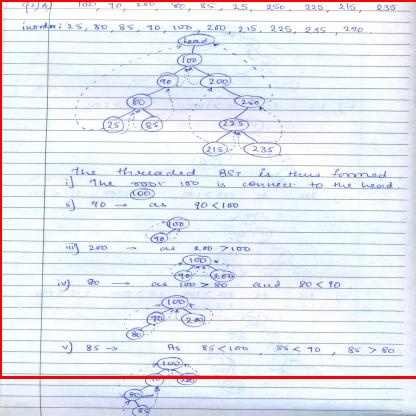 Q2) A) 100, 90, 200, 80, 85, 25, 250, 225, 215, 235
inorder: 25, 80, 85, 90, 100, 200, 215, 225, 235, 250
head
100
90 200
80 250
25 85 225
215 235
The threaded BST is thus formed
i) The root 100 is connect to the head.
100
ii) 90 → as 90 < 100
100
90
iii) 200 → as 200 > 100
100
90 200
iv) 80 → as 100 > 80 and 80 < 90
100
90 200
80
v) 85 → As 85 < 100, 85 < 90, 85 > 80
100
90 200
80
85